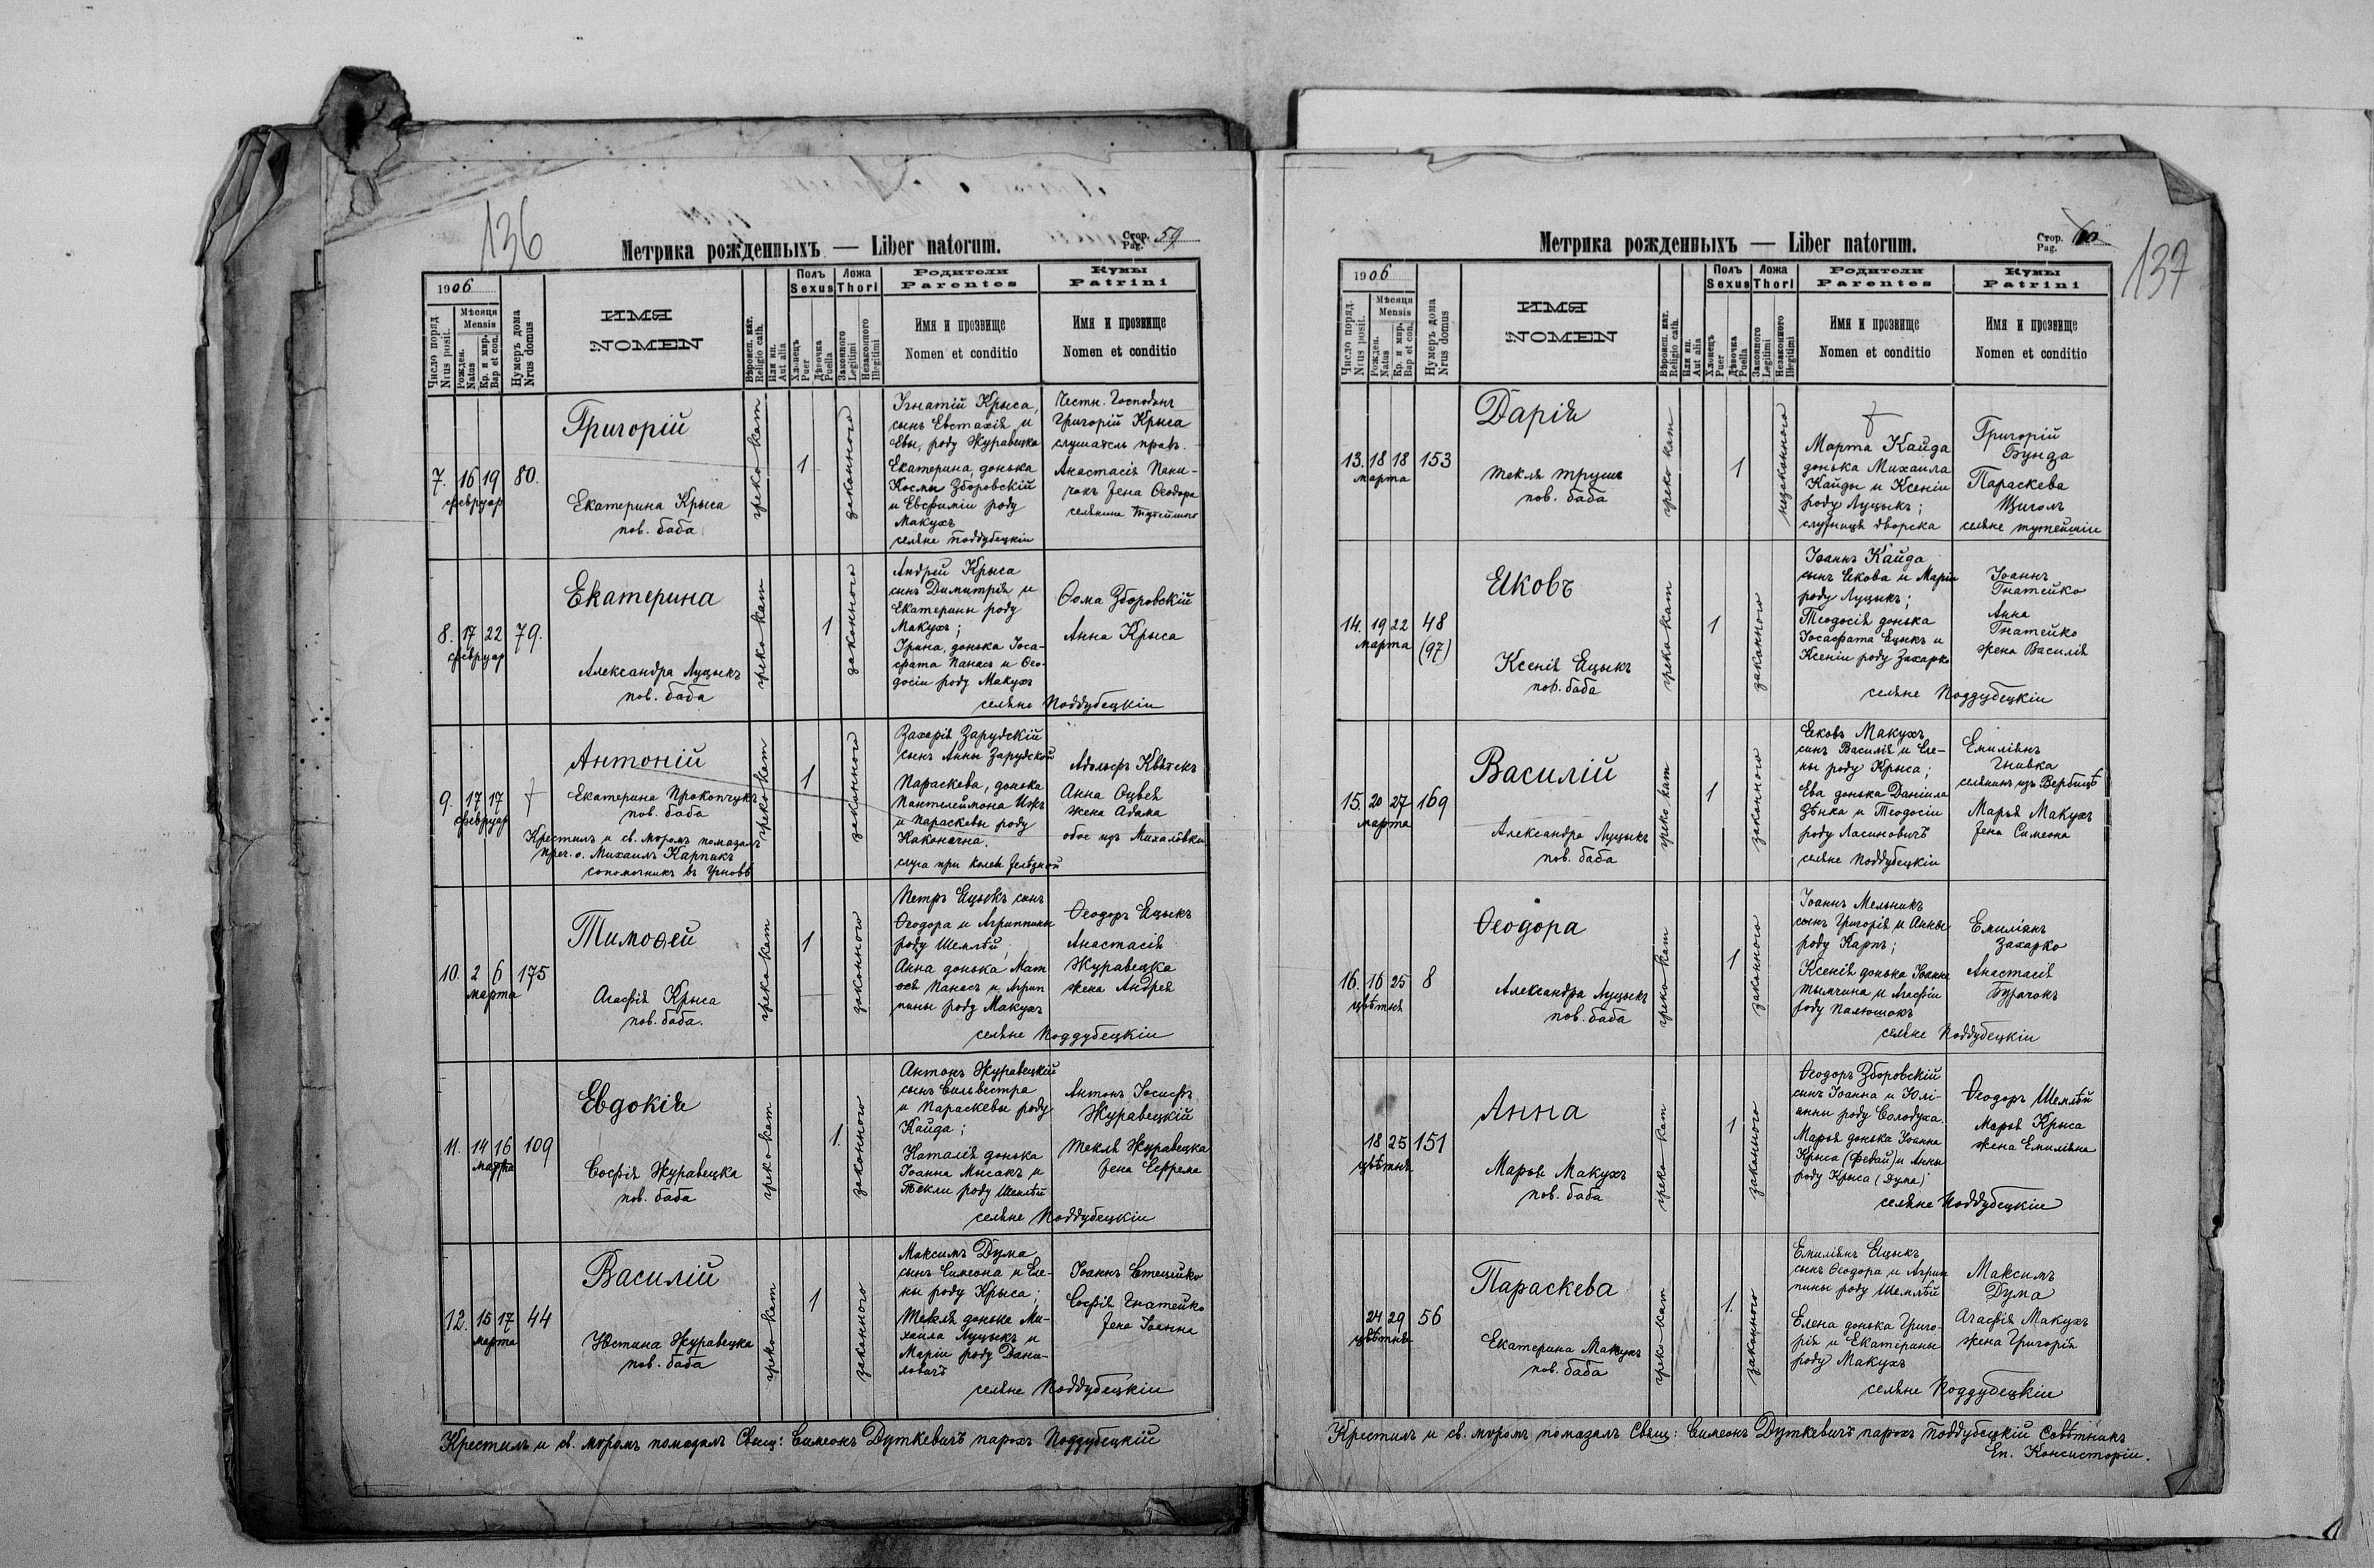 136
Метрика рожденныхъ — Liber natorum.
Стор. Pag. 59
1906
Число поряд. Nrus posit.
Мѣсяця Mensis
Рожден. Natus
Кр. и мир. Bap et con.
Нумеръ дома Nrus domus
ИМЯ
NOMEN
Вѣроисп. кат. Religio cath.
Или ин. Aut alia
Полъ Sexus
Хлопецъ Puer
Дѣвочка Puella
Ложа Thori
Законного Legitimi
Незаконного Illegitimi
Родители
Parentes
Имя и прозвище
Nomen et conditio
Кумы
Patrini
Имя и прозвище
Nomen et conditio
7. 16 19 80.
февруар
Григорій
Екатерина Крыса
пов. баба
греко кат
1
законного
Игнатій Крыса,
сынъ Евстахія и
Евы, роду Журавецка
Екатерина, донька
Космы Зборовскій
и Евфиміи роду
Макухъ
селяне поддубецкіи
Честн. Господинъ
Григорій Крыса
слушатель правъ.
Анастасія
жена Ѳеодора
8. 17 22 79.
февруар
Екатерина
Александра Луцыкъ
пов. баба
греко кат
1
законного
Андрей Крыса
сынъ Димитрія и
Екатерины роду
Макухъ;
Ірина, донька Іоса-
фата Панасъ и Ѳео-
досіи роду Макухъ
селяне Поддубецкіи
Ѳома Зборовскій
Анна Крыса
9. 17 17 †
февруар
Антоній
Екатерина Прокопчукъ
пов. баба
Крестилъ и св. мѵромъ помазалъ
преч. о. Михаилъ Карпякъ
сопомочникъ въ Угновѣ
греко кат
1
законного
Захарія Зарудскій
сынъ Анны Зарудской
Параскева, донька
Пантелеймона
и Параскевы роду
Наконечна.
слуга при колеи желѣзной
Адольфъ
Анна
жена Адама
обое изъ Михаловки
10. 2 6 175
марта
Тимоѳей
Агафія Крыса
пов. баба.
греко кат
1
законного
Петръ Яцыкъ сынъ
Ѳеодора и Агриппины
роду Шемлѣй;
Анна донька Мат
ѳея Панасъ и Агрип
пины роду Макухъ
селяне Поддубецкіи
Ѳеодоръ Яцыкъ
Анастасія
Журавецка
жена Андрея
11. 14 16 109
марта
Евдокія
Софія Журавецка
пов. баба
греко кат
1.
законного
Антонъ Журавецкій
сынъ Сильвестра
и Параскевы роду
Кайда;
Наталія донька
Іоанна Мысакъ и
Текли роду Шемлѣй
селяне Поддубецкіи
Антонъ Іосифъ
Журавецкій
Текля Журавецка
жена Ефрема
12. 15 17 44
марта
Василій
Юстина Журавецка
пов. баба
греко кат
1
законного
Максимъ Дума
сынъ Симеона и Еле-
ны роду Крыса;
Текля донька Ми-
хаила Луцыкъ и
Маріи роду Дани-
ловичъ
селяне Поддубецкіи
Іоаннъ Стецейко
Софія Гнатейко
жена Іоанна
Крестилъ и св. мѵромъ помазалъ Свящ: Симеонъ Дуткевичъ парохъ Поддубецкій
137
Метрика рожденныхъ — Liber natorum.
Стор. Pag. 60
1906
Число поряд. Nrus posit.
Мѣсяця Mensis
Рожден. Natus
Кр. и мир. Bap et con.
Нумеръ дома Nrus domus
ИМЯ
NOMEN
Вѣроисп. кат. Religio cath.
Или ин. Aut alia
Полъ Sexus
Хлопецъ Puer
Дѣвочка Puella
Ложа Thori
Законного Legitimi
Незаконного Illegitimi
Родители
Parentes
Имя и прозвище
Nomen et conditio
Кумы
Patrini
Имя и прозвище
Nomen et conditio
13. 18 18 153
марта
Дарія
Текля Трушъ
пов. баба
греко кат
1
незаконного
†
Марта Кайда
донька Михаила
Кайды и Ксеніи
роду Луцыкъ;
служниця дворска
Григорій
Бунда
Параскева
Щиголь
селяне тутейшіи
14. 19 22 48
марта (97)
Яковъ
Ксенія Яцыкъ
пов. баба
греко кат
1
законного
Іоаннъ Кайда
сынъ Якова и Маріи
роду Луцыкъ;
Теодосія донька
Іосафата Яцыкъ и
Ксеніи роду Захарко
селяне Поддубецкіи
Іоаннъ
Гнатейко
Анна
Гнатейко
жена Василія
15. 20 27 169
марта
Василій
Александра Луцыкъ
пов. баба
греко кат
1
законного
Яковъ Макухъ
сынъ Василія и Еле-
ны роду Крыса;
Ева донька Даніила
Зѣнка и Теодосіи
роду Ласиновичъ
селяне Поддубецкіи
Емиліянъ
Гнивка
селянинъ изъ Вербицѣ
Марья Макухъ
жена Симеона
16. 16 25 8
цвѣтня
Ѳеодора
Александра Луцыкъ
пов. баба
греко кат
1
законного
Іоаннъ Мельникъ
сынъ Григорія и Анны
роду Карпъ;
Ксенія донька Іоанна
Тымчина и Агафіи
роду Палюшокъ
селяне Поддубецкіи
Емиліанъ
Захарко
Анастасія
Бурачокъ
18 25 151
цвѣтня
Анна
Марья Макухъ
пов. баба
греко кат
1
законного
Ѳеодоръ Зборовскій
сынъ Іоанна и Юлі-
анны роду Солодуха.
Марья донька Іоанна
Крыса (Федай) и Анны
роду Крыса (Дума)
селяне Поддубецкіи
Ѳеодоръ Шемлѣй
Марья Крыса
жена Емиліяна
24 29 56
цвѣтня
Параскева
Екатерина Макухъ
пов. баба
греко-кат
1.
законного
Емиліянъ Яцыкъ
сынъ Ѳеодора и Агрип
пины роду Шемлѣй
Елена донька Григо-
рія и Екатерины
роду Макухъ
селяне Поддубецкіи
Максимъ
Дума
Агафія Макухъ
жена Григорія
Крестилъ и св. мѵромъ помазалъ Свящ: Симеонъ Дуткевичъ парохъ Поддубецкій Совѣтникъ
Еп. Консисторіи.